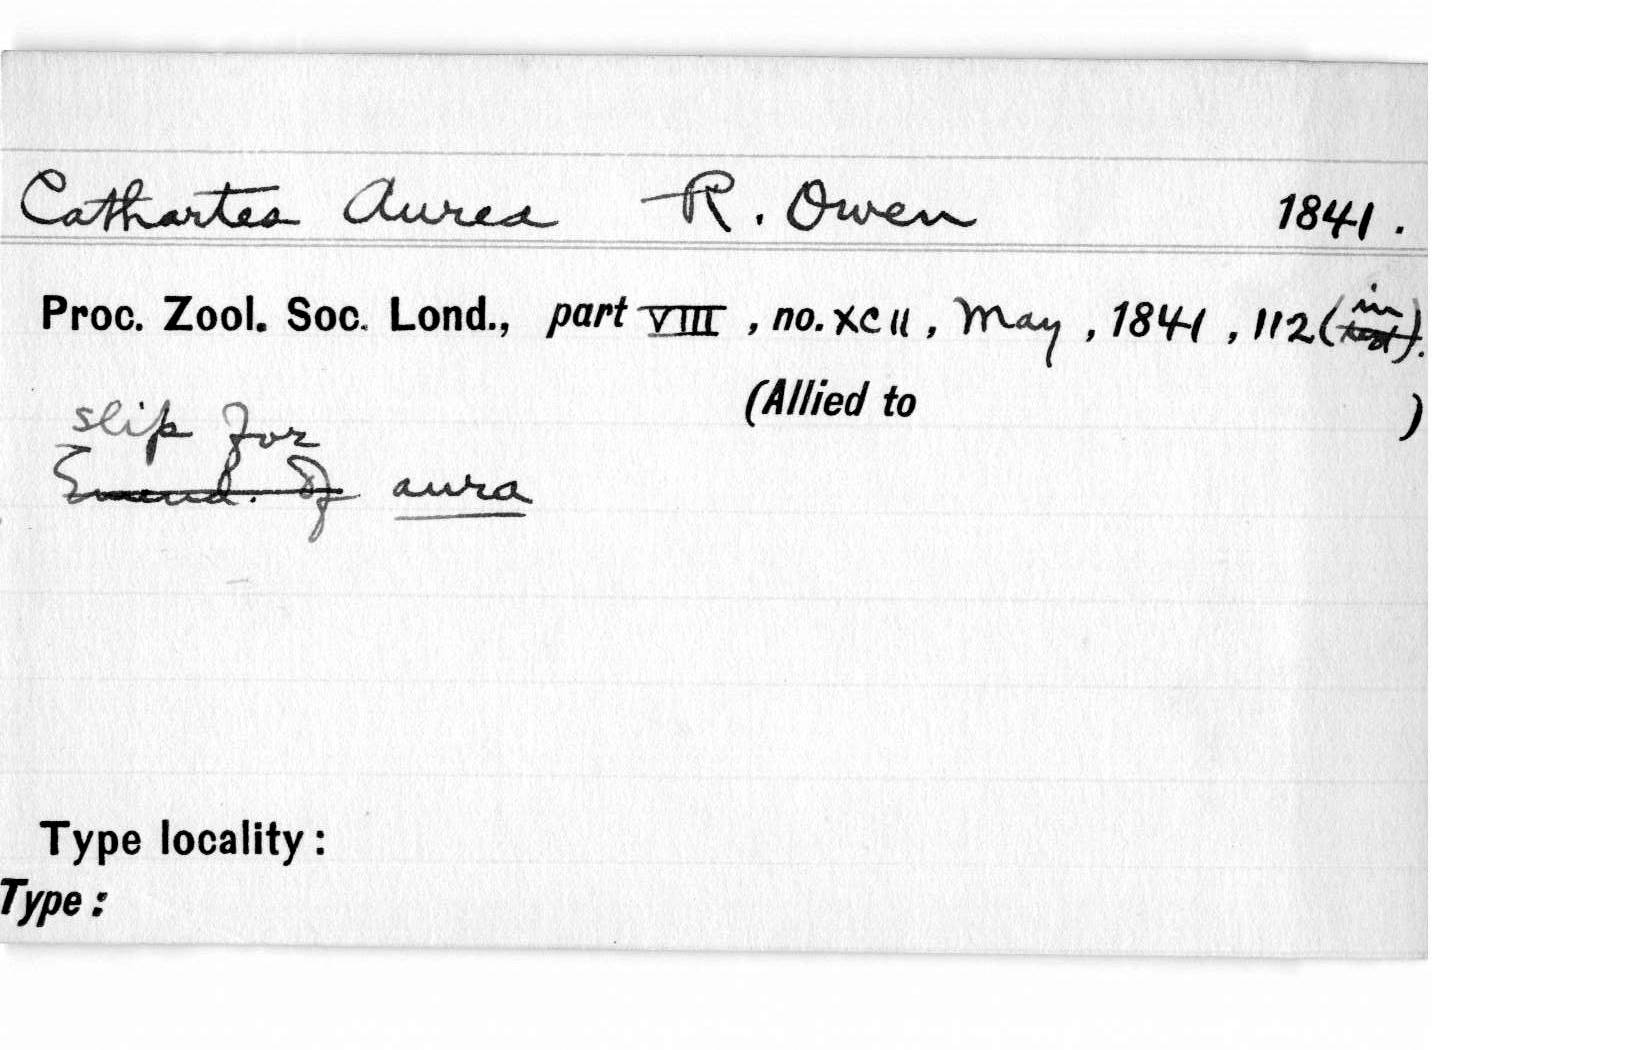 Cathartes Aurea R. Owen 1841.
Proc. Zool. Soc. Lond., part VIII, no. XCII, May, 1841, 112 (in text).
(Allied to )
slip for
Emend. of aura
Type locality:
Type: